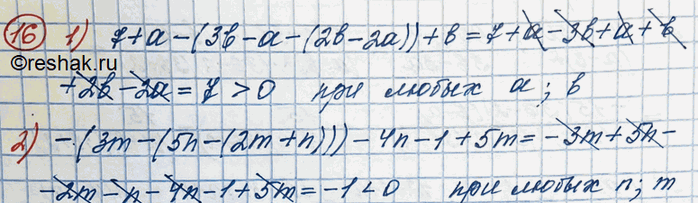 16 1) 7+a-(3b-a-(2b-2a))+b=7+a-3b+a+b
©reshak.ru
+2b-2a=7>0 при любых a; b
2) -(3m-(5n-(2m+n)))-4n-1+5m=-3m+5n-
-2m-n-4n-1+5m=-1<0 при любых n; m